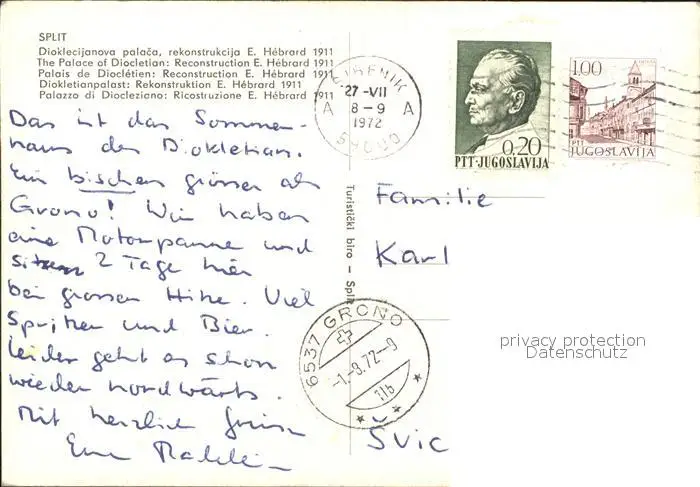 SPLIT
Dioklecijanova palača, rekonstrukcija E. Hébrard 1911
The Palace of Diocletian: Reconstruction E. Hébrard 1911
Palais de Dioclétien: Reconstruction E. Hébrard 1911
Diokletianpalast: Rekonstruktion E. Hébrard 1911
Palazzo di Diocleziano: Ricostruzione E. Hébrard 1911
Das ist das Sommer-
haus des Diokletian.
Ein bischen grösser als
Grono! Wir haben
eine Motorpanne und
sitzen 2 Tage hier
bei grosser Hitze. Viel
Spritzer und Bier.
Leider geht es schon
wieder nordwärts.
Mit herzlich Grüssen
Turistički biro — Split
27-VII
A 8-9 A
1972
0.20
PTT-JUGOSLAVIJA
1.00
PTT
JUGOSLAVIJA
Familie
Karl
6537 GRONO
-1.-8.72-9
privacy protection
Datenschutz
ŠVIC